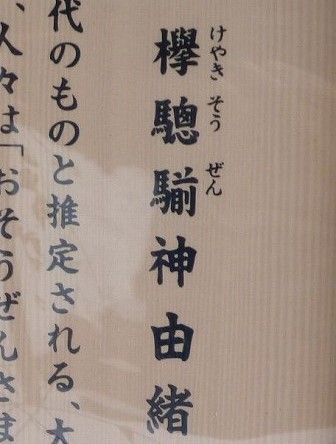 けやき そう ぜん
欅驄騚神由緒
代のものと推定される、大
、人々は「おそうぜんさま